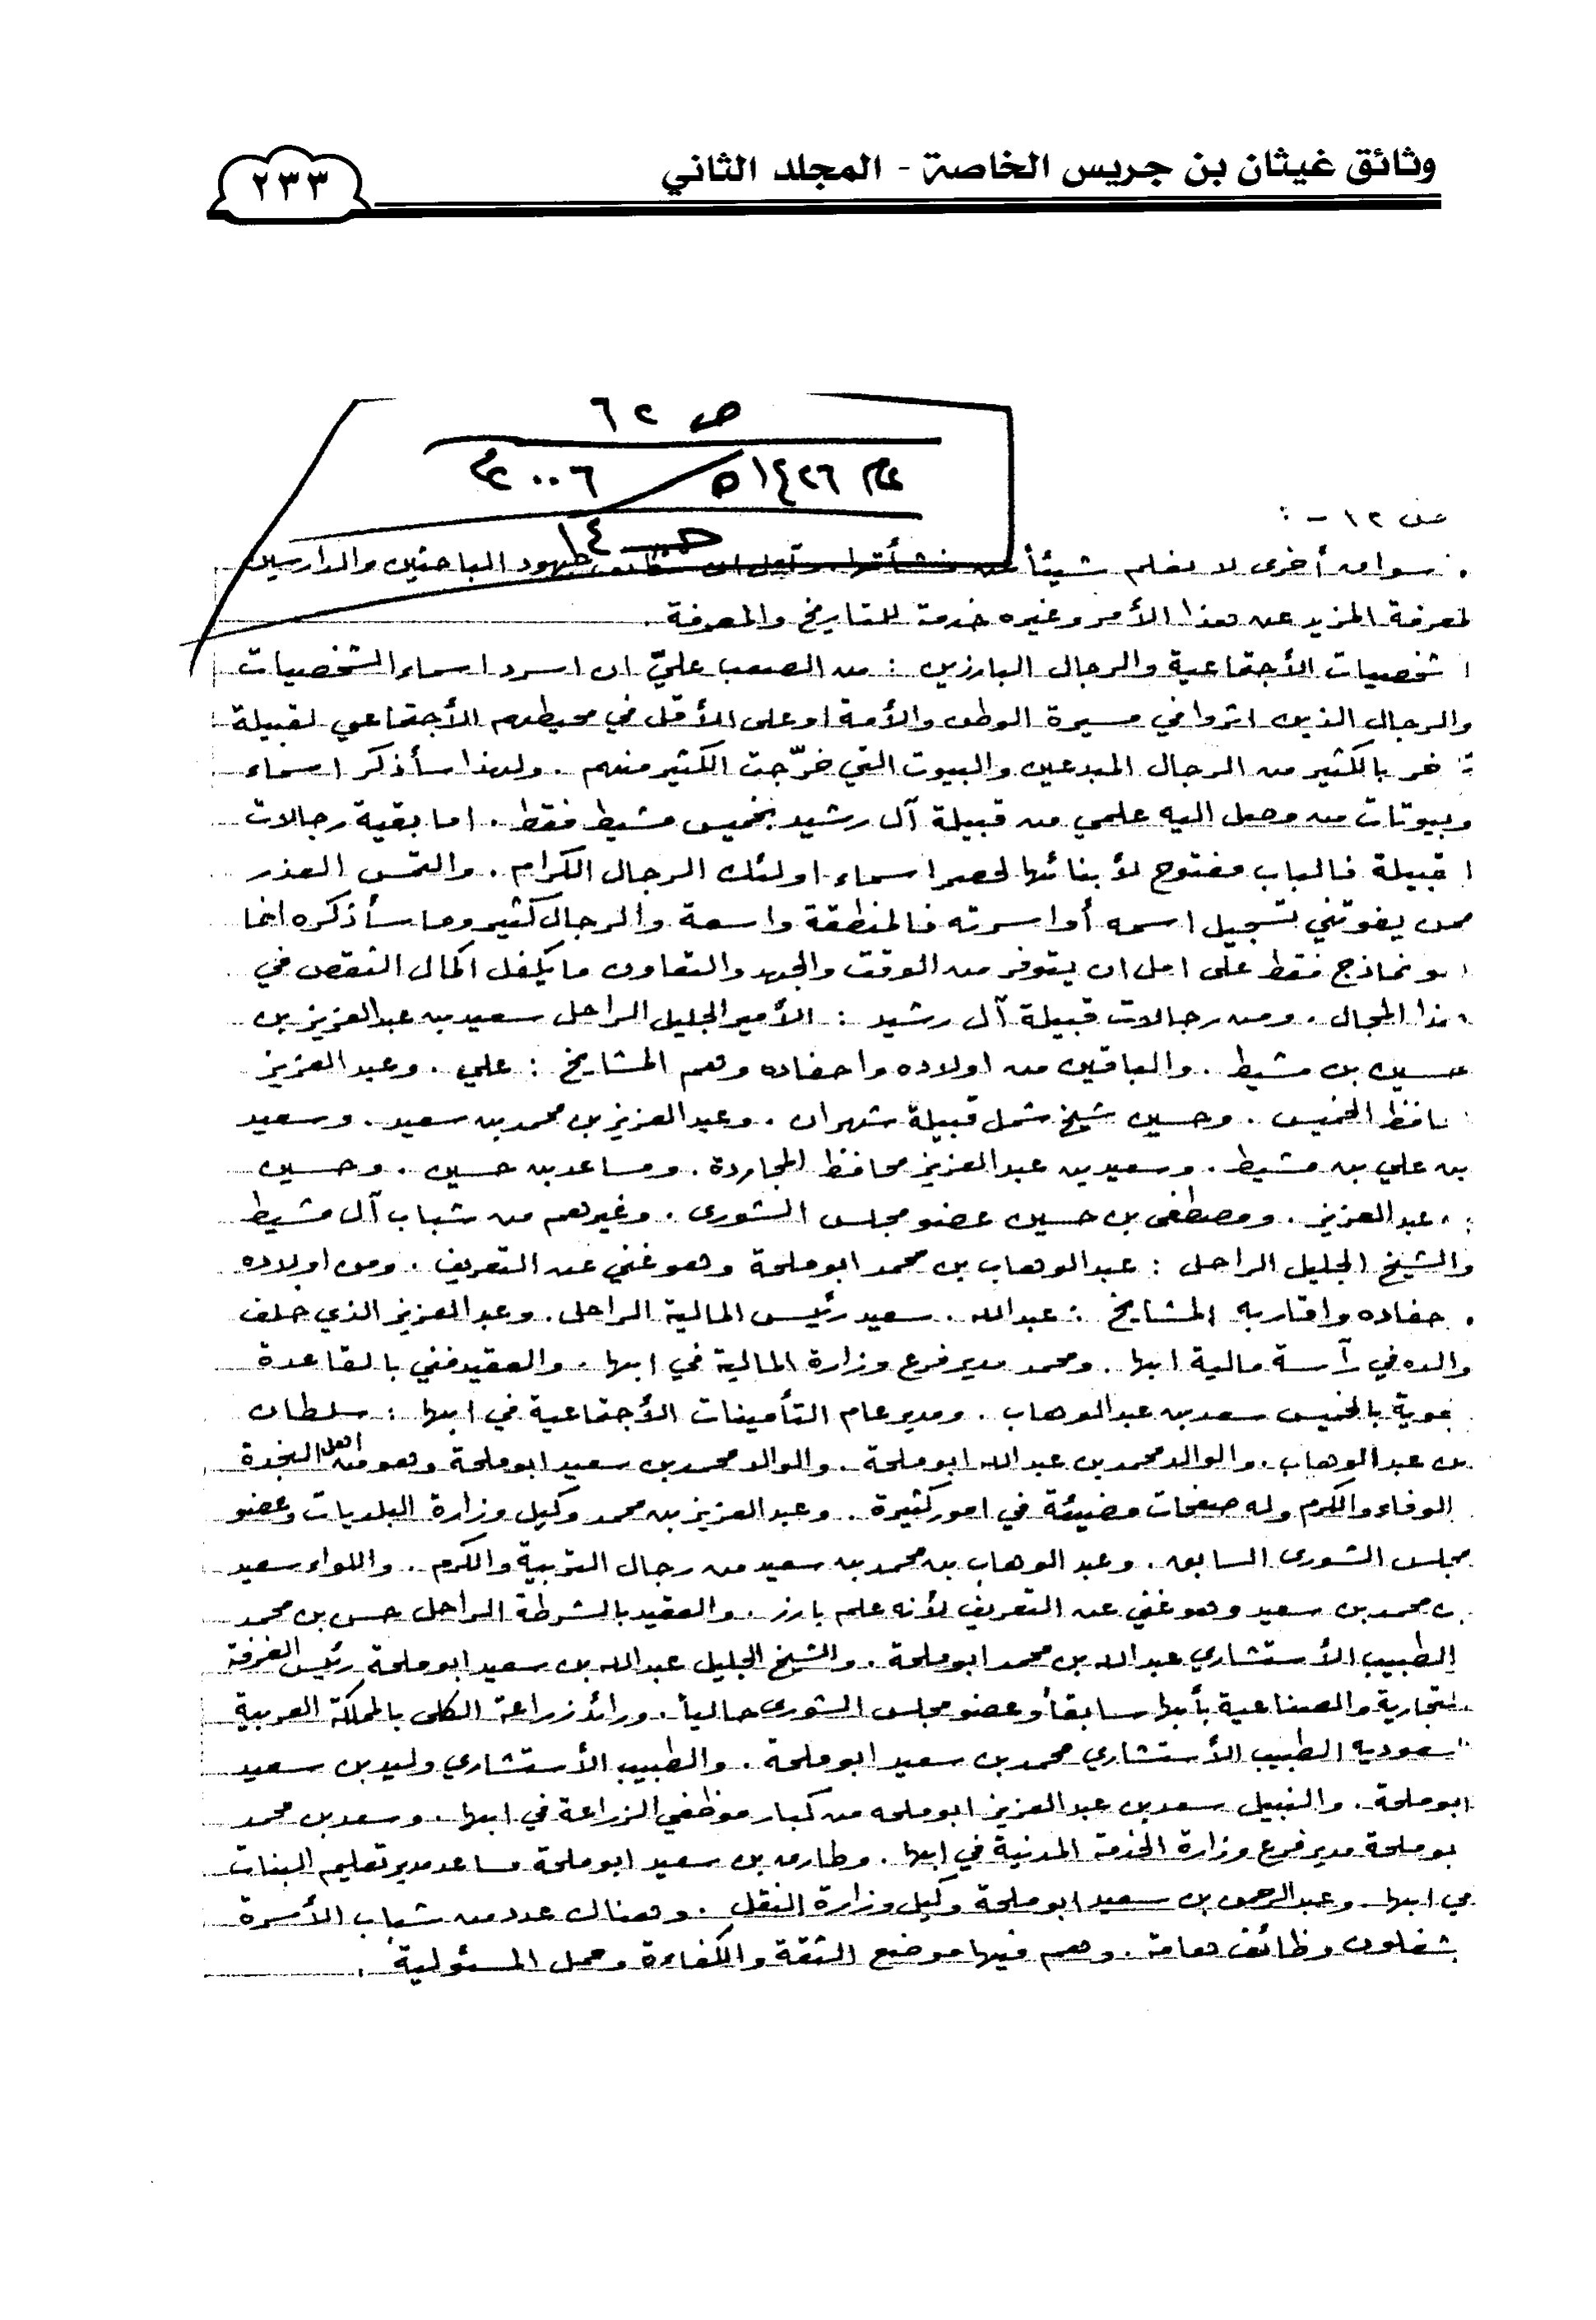 وثائق غيثان بن جريس الخاصة - المجلد الثاني
٢٣٣
ص ٦٢
عام ١٤٢٦هـ / ٢٠٠٦م
ص ١٤
ص ١٢ - :
سواق أخرى لا نعلم شيئاً عن نشأتها. وآمل ان جهود الباحثين والدارسين
لمعرفة المزيد عن هذا الأمر وغيره خدمة للتاريخ والمعرفة .
شخصيات الأجتماعية والرجال البارزين : من الصعب عليّ ان اسرد اسماء الشخصيات
والرجال الذين اثروا في مسيرة الوطن والأمة او على الأقل في محيطهم الأجتماعي لقبيلة
خر بالكثير من الرجال المبدعين والبيوت التي خرّجت الكثير منهم . ولهذا سأذكر اسماء
وبيوتات من وصل اليه علمي من قبيلة آل رشيد بخميس مشيط فقط . اما بقية رجالات
قبيلة فالباب مفتوح لأبنائها لحصر اسماء اولئك الرجال الكرام . والتمس العذر
ممن يفوتني تسجيل اسمه أو اسرته فالمنطقة واسعة والرجال كثير وما سأذكره انما
هو نماذج فقط على امل ان يتوفر من الوقت والجهد والتعاون ما يكفل اكمال النقص في
هذا المجال . ومن رجالات قبيلة آل رشيد : الأمير الجليل الراحل سعيد بن عبدالعزيز بن
حسين بن مشيط . والباقين من اولاده واحفاده وهم المشايخ : علي . وعبدالعزيز
حافظ الخميس . وحسين شيخ شمل قبيلة شهران . وعبدالعزيز بن محمد بن سعيد . وسعيد
بن علي بن مشيط . وسعيد بن عبدالعزيز محافظ المجاردة . ومساعد بن حسين . وحسين
عبدالعزيز . ومصطفى بن حسين عضو مجلس الشورى . وغيرهم من شباب آل مشيط
والشيخ الجليل الراحل : عبدالوهاب بن محمد ابوملحة وهو غني عن التعريف . ومن اولاده
حفاده واقاربه المشايخ : عبدالله . سعيد رئيس المالية الراحل . وعبدالعزيز الذي خلف
والده في رآسة مالية ابها . ومحمد مدير فرع وزارة المالية في ابها . والعقيد فني بالقاعدة
جوية بالخميس سعد بن عبدالوهاب . ومدير عام التأمينات الأجتماعية في ابها : سلطان
بن عبدالوهاب . والوالد محمد بن عبدالله ابوملحة . والوالد محمد بن سعيد ابوملحة وهو من اهل النجدة
الوفاء والكرم وله صفحات مضيئة في امور كثيرة . وعبدالعزيز بن محمد وكيل وزارة البلديات وعضو
مجلس الشورى السابق . وعبدالوهاب بن محمد بن سعيد من رجال التربية والكرم . واللواء سعيد
بن محمد بن سعيد وهو غني عن التعريف لأنه علم بارز . والعقيد بالشرطة الراحل حسن بن محمد
الطبيب الأستشاري عبدالله بن محمد ابوملحة . والشيخ الجليل عبدالله بن سعيد ابوملحة رئيس الغرفة
لتجارية والصناعية بأبها سابقاً وعضو مجلس الشورى حالياً . ورائد زراعة الكلى بالمملكة العربية
سعوديه الطبيب الأستشاري محمد بن سعيد ابوملحة . والطبيب الأستشاري وليد بن سعيد
ابوملحة . والنبيل سعد بن عبدالعزيز ابوملحه من كبار موظفي الزراعة في ابها . وسعد بن محمد
بوملحة مدير فرع وزارة الخدمة المدنية في ابها . وطارق بن سعيد ابوملحة مساعد مدير تعليم البنات
في ابها . وعبدالرحمن بن سعيد ابوملحة وكيل وزارة النقل . وهناك عدد من شباب الأسرة
يشغلون وظائف هامة . وهم فيها موضع الثقة والكفاءة وحمل المسئولية .